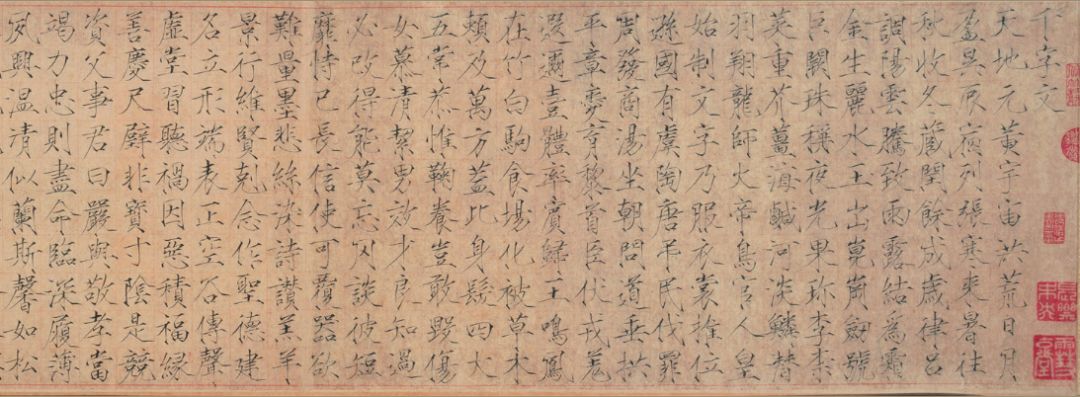 千字文
天地元黃宇宙洪荒日月
盈昃辰宿列張寒來暑往
秋收冬藏閏餘成歲律呂
調陽雲騰致雨露結為霜
金生麗水玉出崑崗劍號
巨闕珠稱夜光果珍李柰
菜重芥薑海鹹河淡鱗潛
羽翔龍師火帝鳥官人皇
始制文字乃服衣裳推位
遜國有虞陶唐弔民伐罪
周發商湯坐朝問道垂拱
平章愛育黎首臣伏戎羌
遐邇壹體率賓歸王鳴鳳
在竹白駒食場化被草木
賴及萬方蓋此身髮四大
五常恭惟鞠養豈敢毀傷
女慕清絜男效才良知過
必改得能莫忘罔談彼短
靡恃己長信使可覆器欲
難量墨悲絲染詩讚羔羊
景行維賢剋念作聖德建
名立形端表正空谷傳聲
虛堂習聽禍因惡積福緣
善慶尺璧非寶寸陰是競
資父事君曰嚴與敬孝當
竭力忠則盡命臨深履薄
夙興溫清似蘭斯馨如松